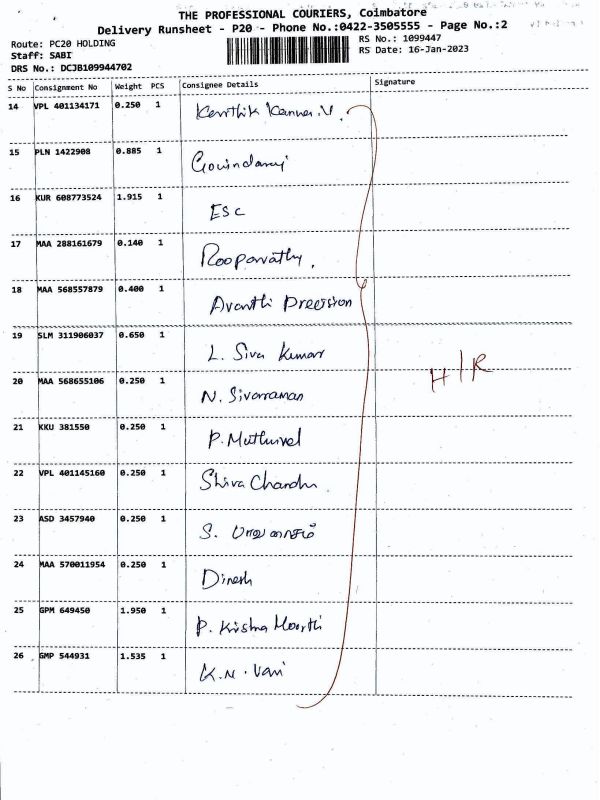 THE PROFESSIONAL COURIERS, Coimbatore
Delivery Runsheet - P20 - Phone No.:0422-3505555 - Page No.:2
Route: PC20 HOLDING
Staff: SABI
DRS No.: DCJB109944702
RS No.: 1099447
RS Date: 16-Jan-2023
S No Consignment No Weight PCS Consignee Details Signature
14 VPL 401134171 0.250 1 Karthik Kanna.V.
15 PLN 1422908 0.885 1 Govindaraj
16 KUR 608773524 1.915 1 ESC
17 MAA 288161679 0.140 1 Rooparvathy.
18 MAA 568557879 0.400 1 Avanthi Precision
19 SLM 311906037 0.650 1 L. Siva Kumar
20 MAA 568655106 0.250 1 N. Sivaraman
H/R
21 KKU 381550 0.250 1 P. Muthuvel
22 VPL 401145160 0.250 1 Shiva Chandru.
23 ASD 3457940 0.250 1 S.
24 MAA 570011954 0.250 1 Dinesh
25 GPM 649450 1.950 1 P. Krishna Moorthi
26 GMP 544931 1.535 1 K.N. Vani